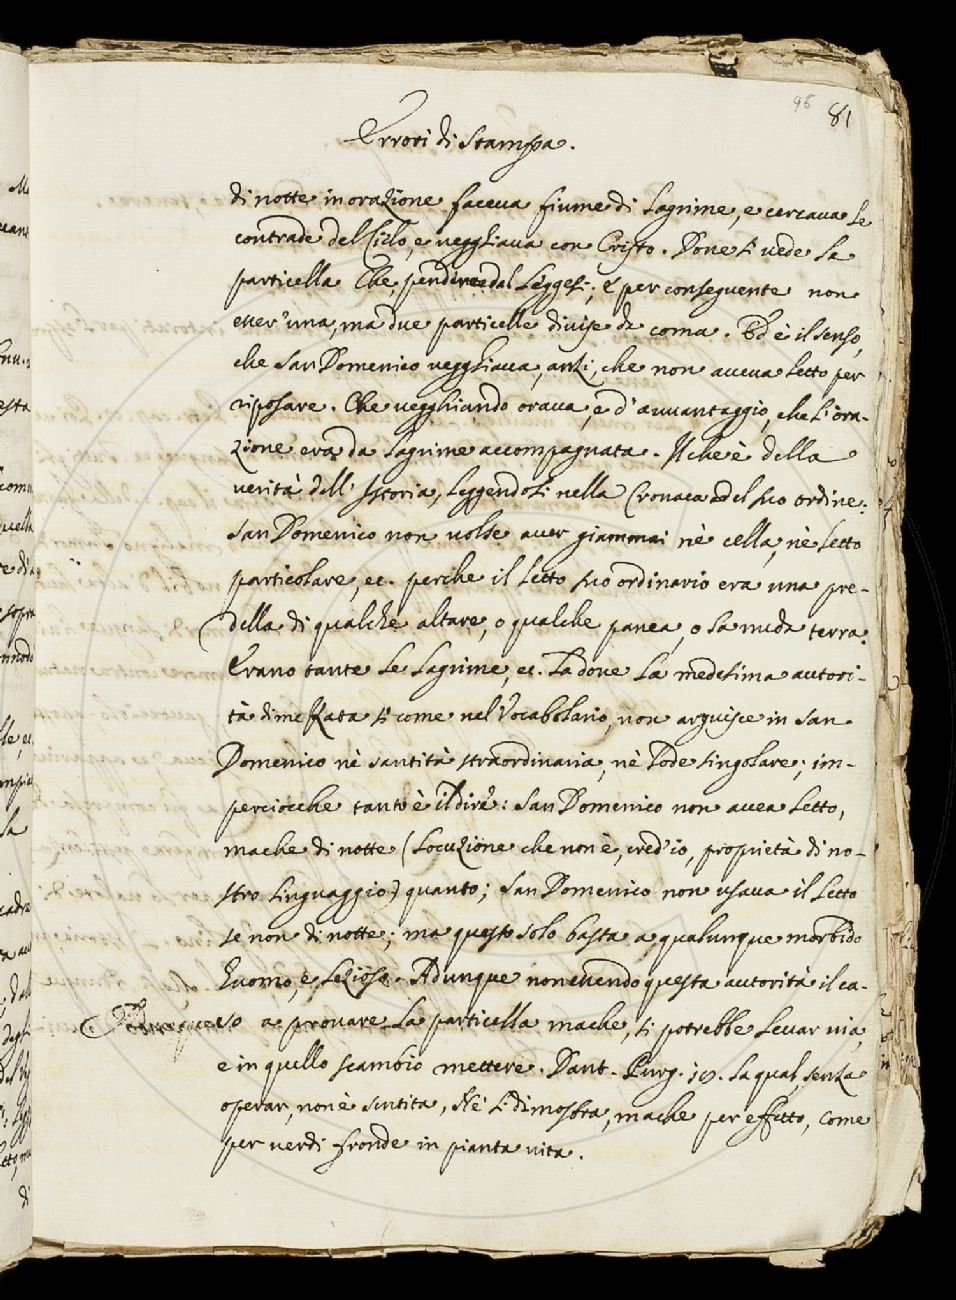 96 81
Errori di stampa.
di notte in orazione faceva fiume di lagrime, e cercava le
contrade del Cielo, e vegghiava con Cristo. Dove si vede la
particella Che, pendente dal leggesi; e per conseguente non
esser' una, ma due particelle divise da coma. Ed è il senso,
che San Domenico vegghiava, anzi, che non aveva letto per
riposare. Che vegghiando orava, e d'avvantaggio, che l'ora-
zione era da lagrime accompagnata. Il che è della
verità dell' Istoria, leggendosi nella Cronaca del suo ordine:
San Domenico non volse aver giammai nè cella, nè letto
particolare, ec. perche il letto suo ordinario era una pre-
della di qualche altare, o qualche panca, o la nuda terra.
Erano tante le lagrime, ec. Là dove la medesima autori-
tà dimezzata sì come nel Vocabolario, non arguisce in San
Domenico nè santità straordinaria, nè lode singolare; im-
perciocche tanto è il dire: San Domenico non avea letto,
mache di notte (locuzione che non è, cred'io, proprietà di no-
stro linguaggio) quanto; San Domenico non usava il letto
se non di notte; ma questo solo basta a qualunque morbido
huomo, e lezioso. Adunque non avendo questa autorità il ca-
so a provare la particella mache, si potrebbe levar via,
e in quello scambio mettere. Dant. Purg. 18. La qual, senza
operar, non è sentita, Nè si dimostra, mache per effetto, come
per verdi fronde in pianta vita.